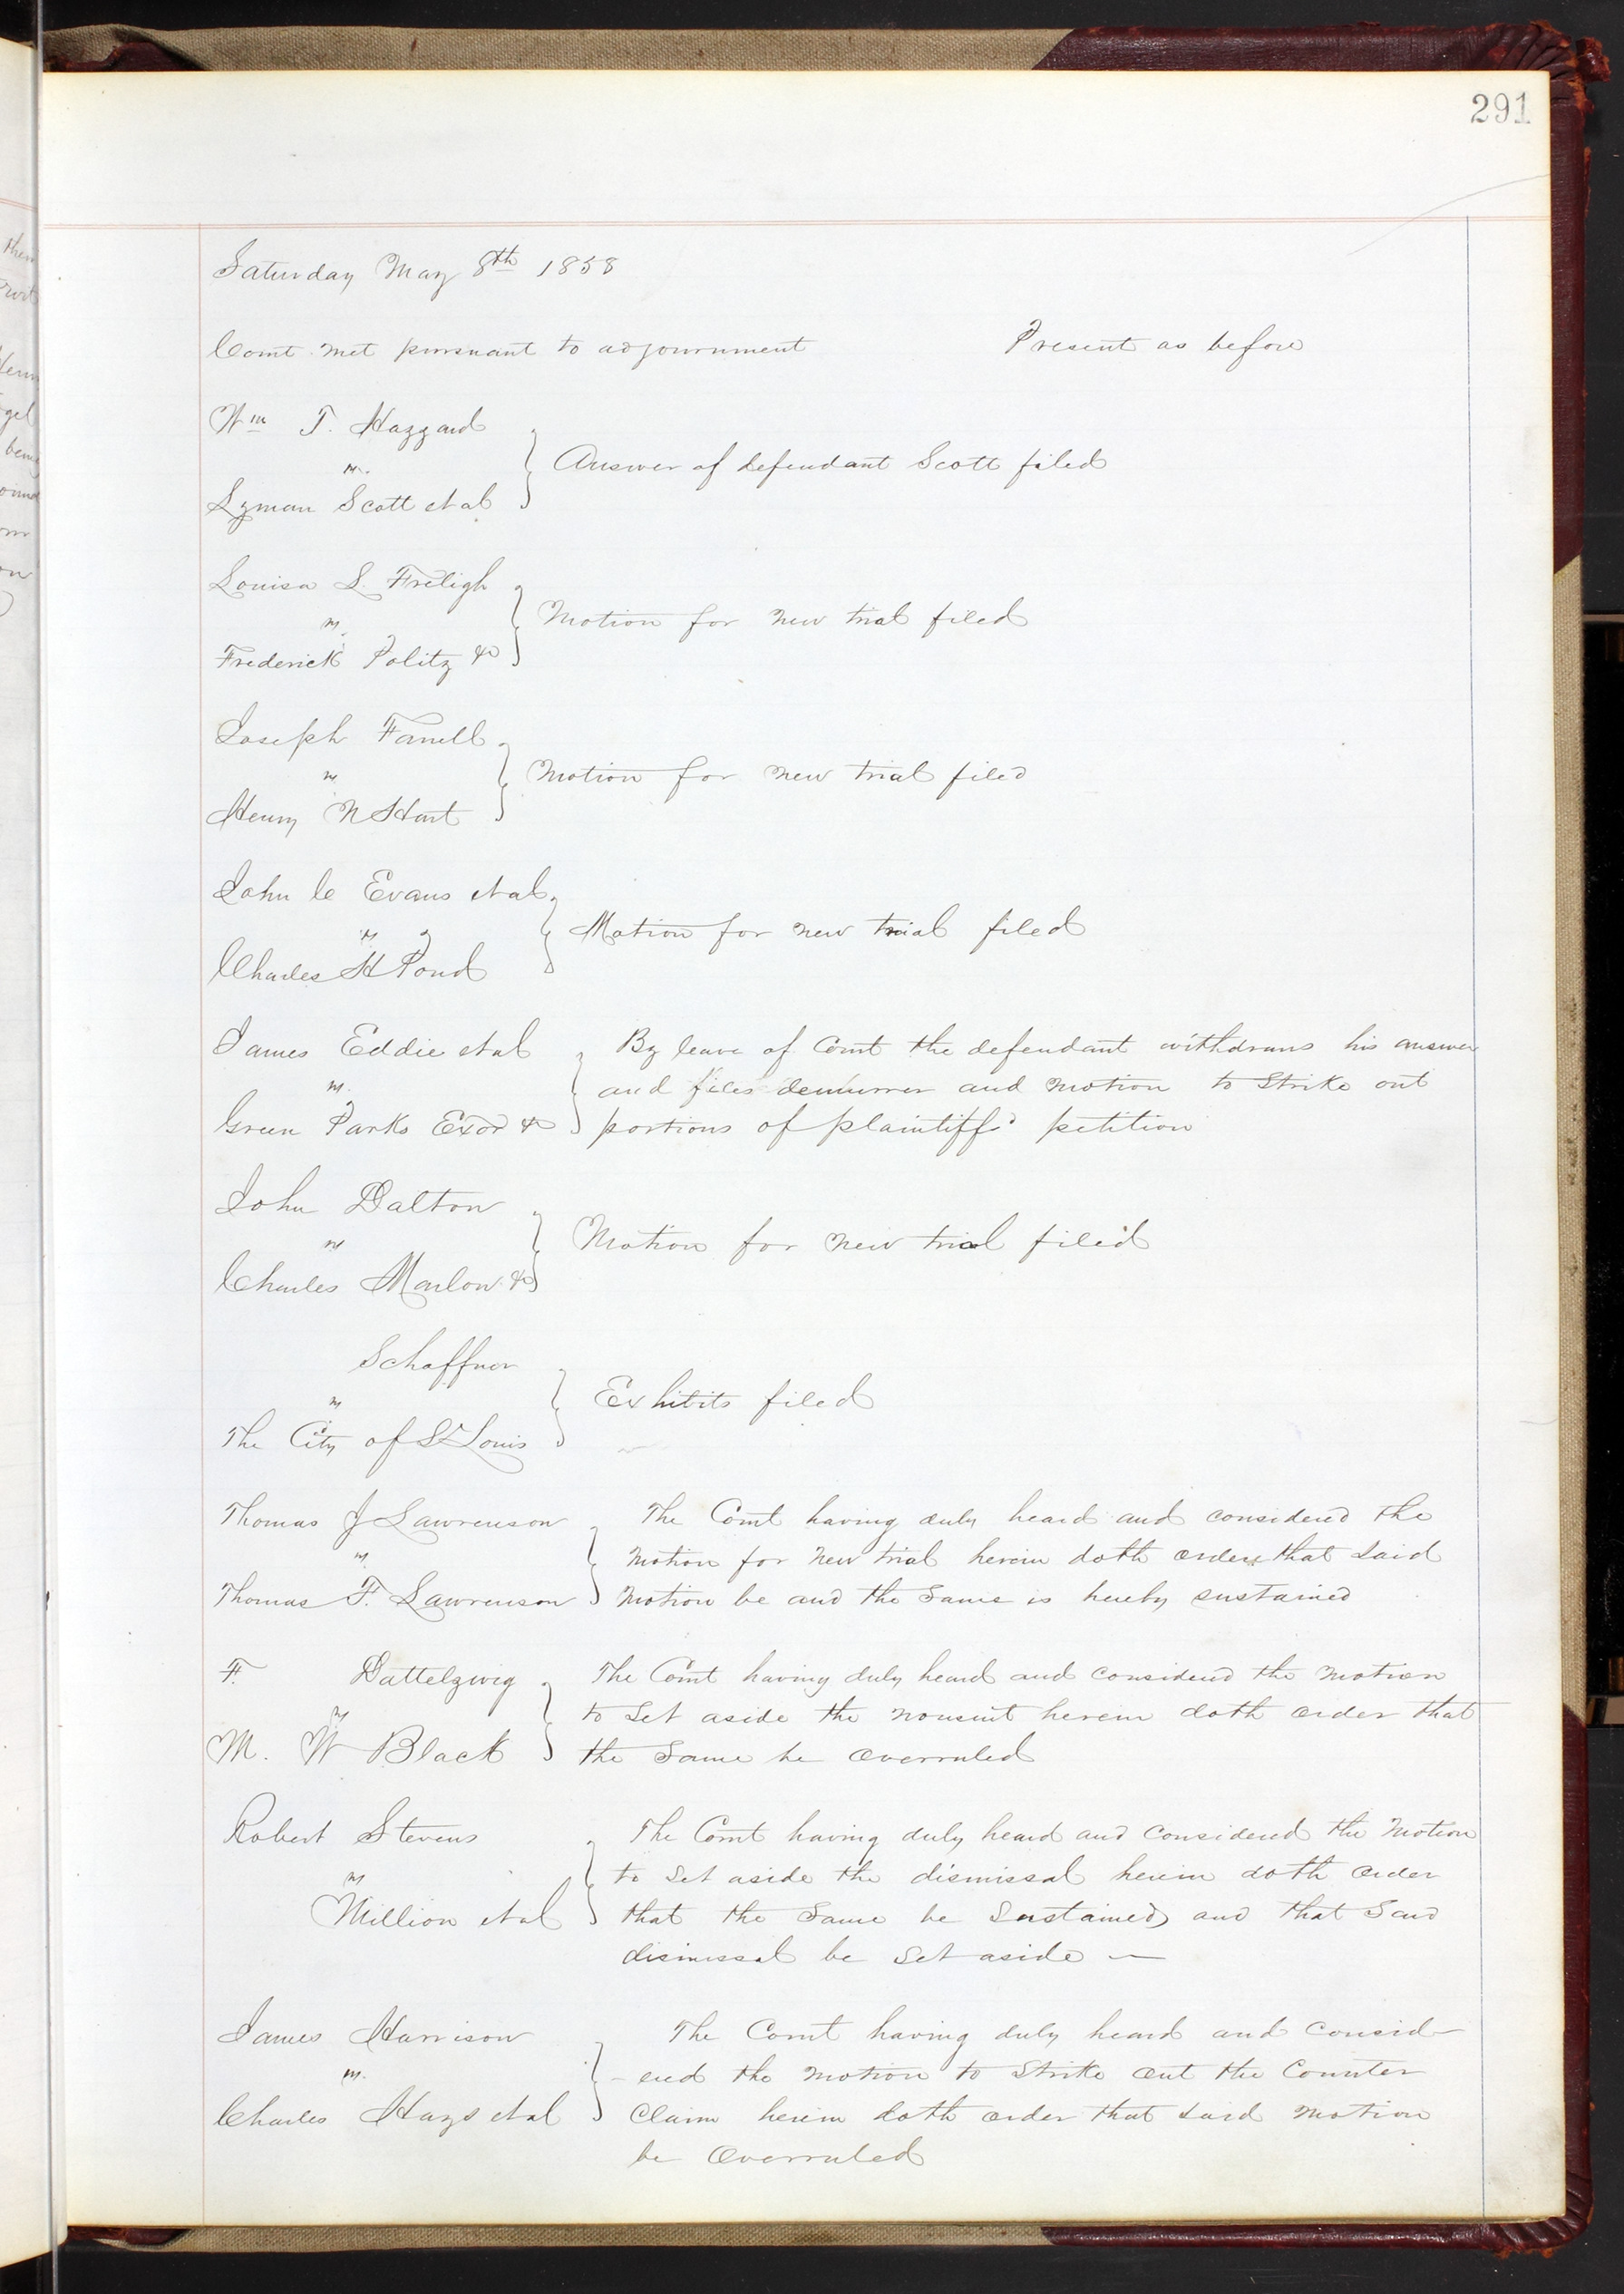 291
Saturday May 8th 1858
Court met pursuant to adjournment Present as before
Wm T. Hazzard
vs.
Lyman Scott et al
Answer of defendant Scott filed
Louisa L. Freligh
vs.
Frederick Politz &c
Motion for new trial filed
Joseph Farrell
vs
Henry N Hart
Motion for new trial filed
John C Evans et al
vs
Charles H Pond
Motion for new trial filed
James Eddie et al
vs.
Green Parks Exor &c
By leave of Court the defendant withdraws his answer
and files demurrer and motion to Strike out
portions of plaintiffs petition
John Dalton
vs
Charles Marlow &c
Motion for new trial filed
Schaffner
vs
The City of St Louis
Exhibits filed
Thomas J Lawrenson
vs
Thomas F. Lawrenson
The Court having duly heard and considered the
Motion for New trial herein doth order that said
Motion be and the Same is hereby sustained
F. Dattelzwig
vs
M. W Black
The Court having duly heard and considered the Motion
to Set aside the nonsuit herein doth order that
the Same be overruled
Robert Stevens
vs
Million et al
The Court having duly heard and Considered the Motion
to Set aside the dismissal herein doth order
that the Same be Sustained and that Said
dismissal be Set aside —
James Harrison
vs.
Charles Hays et al
The Court having duly heard and consid-
-ered the Motion to Strike out the Counter
Claim herein doth order that said Motion
be Overruled